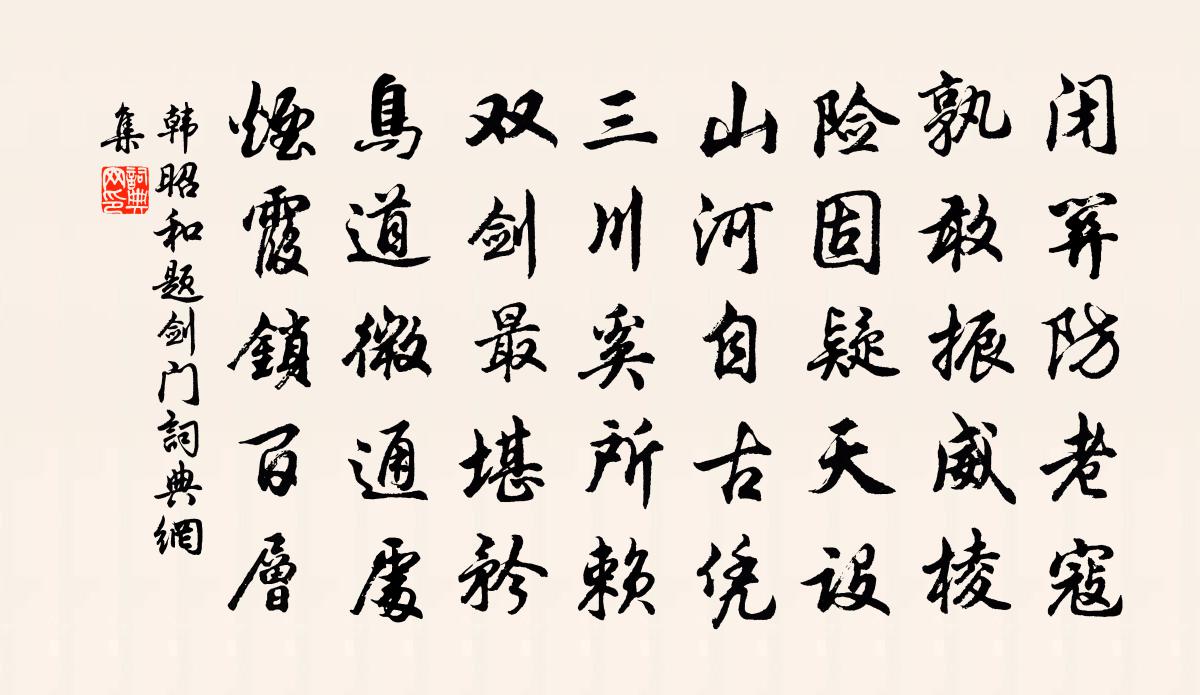 闭关防老寇
孰敢振威棱
险固疑天设
山河自古凭
三川奚所赖
双剑最堪矜
鳥道微通處
煙霞鎖百層
韩昭和题剑门詞典網
集
詞典
网印